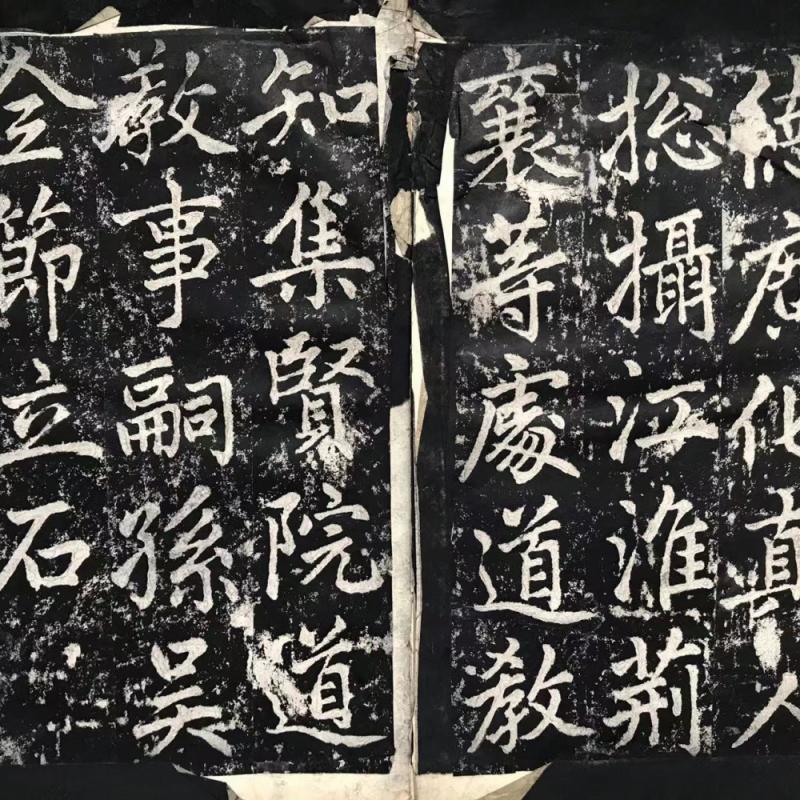 德廣化真人
捴攝江淮荆
襄䓁處道教
知集賢院道
教事嗣孫吴
全節立石